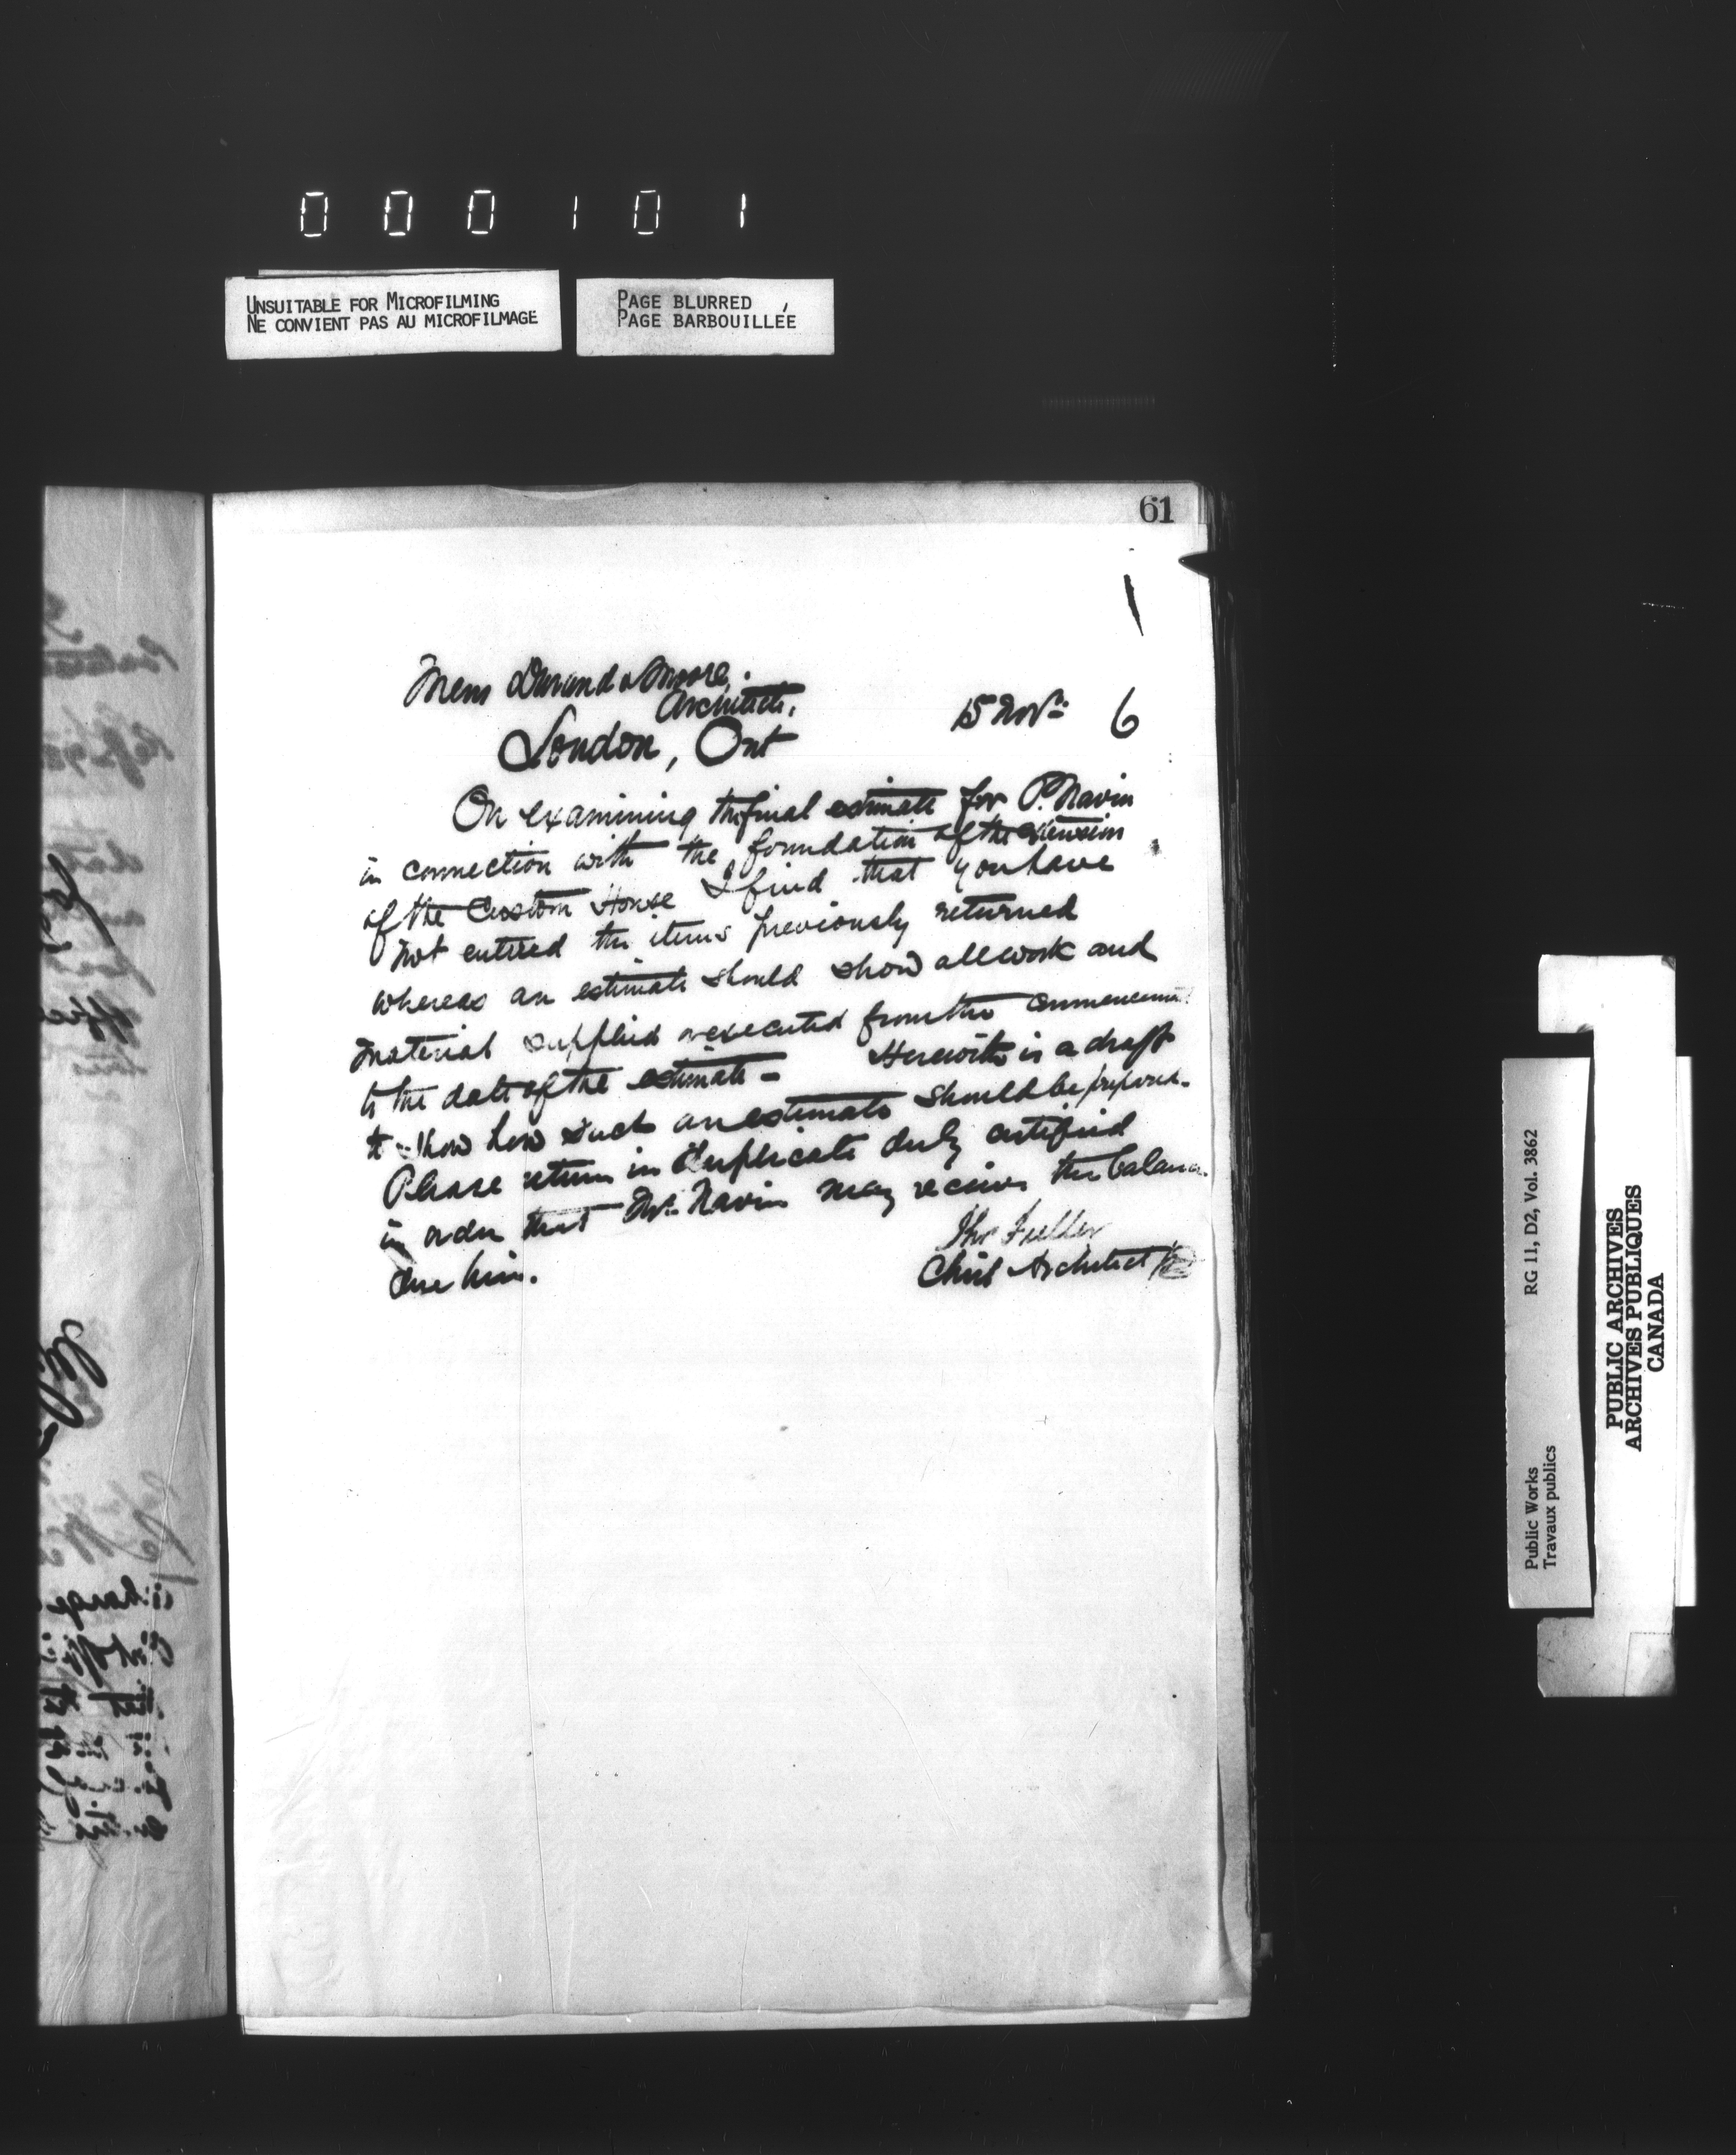 000101
UNSUITABLE FOR MICROFILMING
NE CONVIENT PAS AU MICROFILMAGE
PAGE BLURRED
PAGE BARBOUILLÉE
61
Mess Durand & Moore,
Architects,
London, Ont
15 Novr 6
On examining the final estimate for P. Navin
in connection with the foundation of the extension
of the Custom House I find that you have
not entered the items previously returned
whereas an estimate should show all work and
material supplied or executed from the commencement
to the date of the estimate - Herewith is a draft
to show how such an estimate should be prepared.
Please return in duplicate duly certified
in order that Mr. Navin may receive the balance
due him.
Thos Fuller
Chief Architect
Public Works
Travaux publics
RG 11, D2, Vol. 3862
PUBLIC ARCHIVES
ARCHIVES PUBLIQUES
CANADA